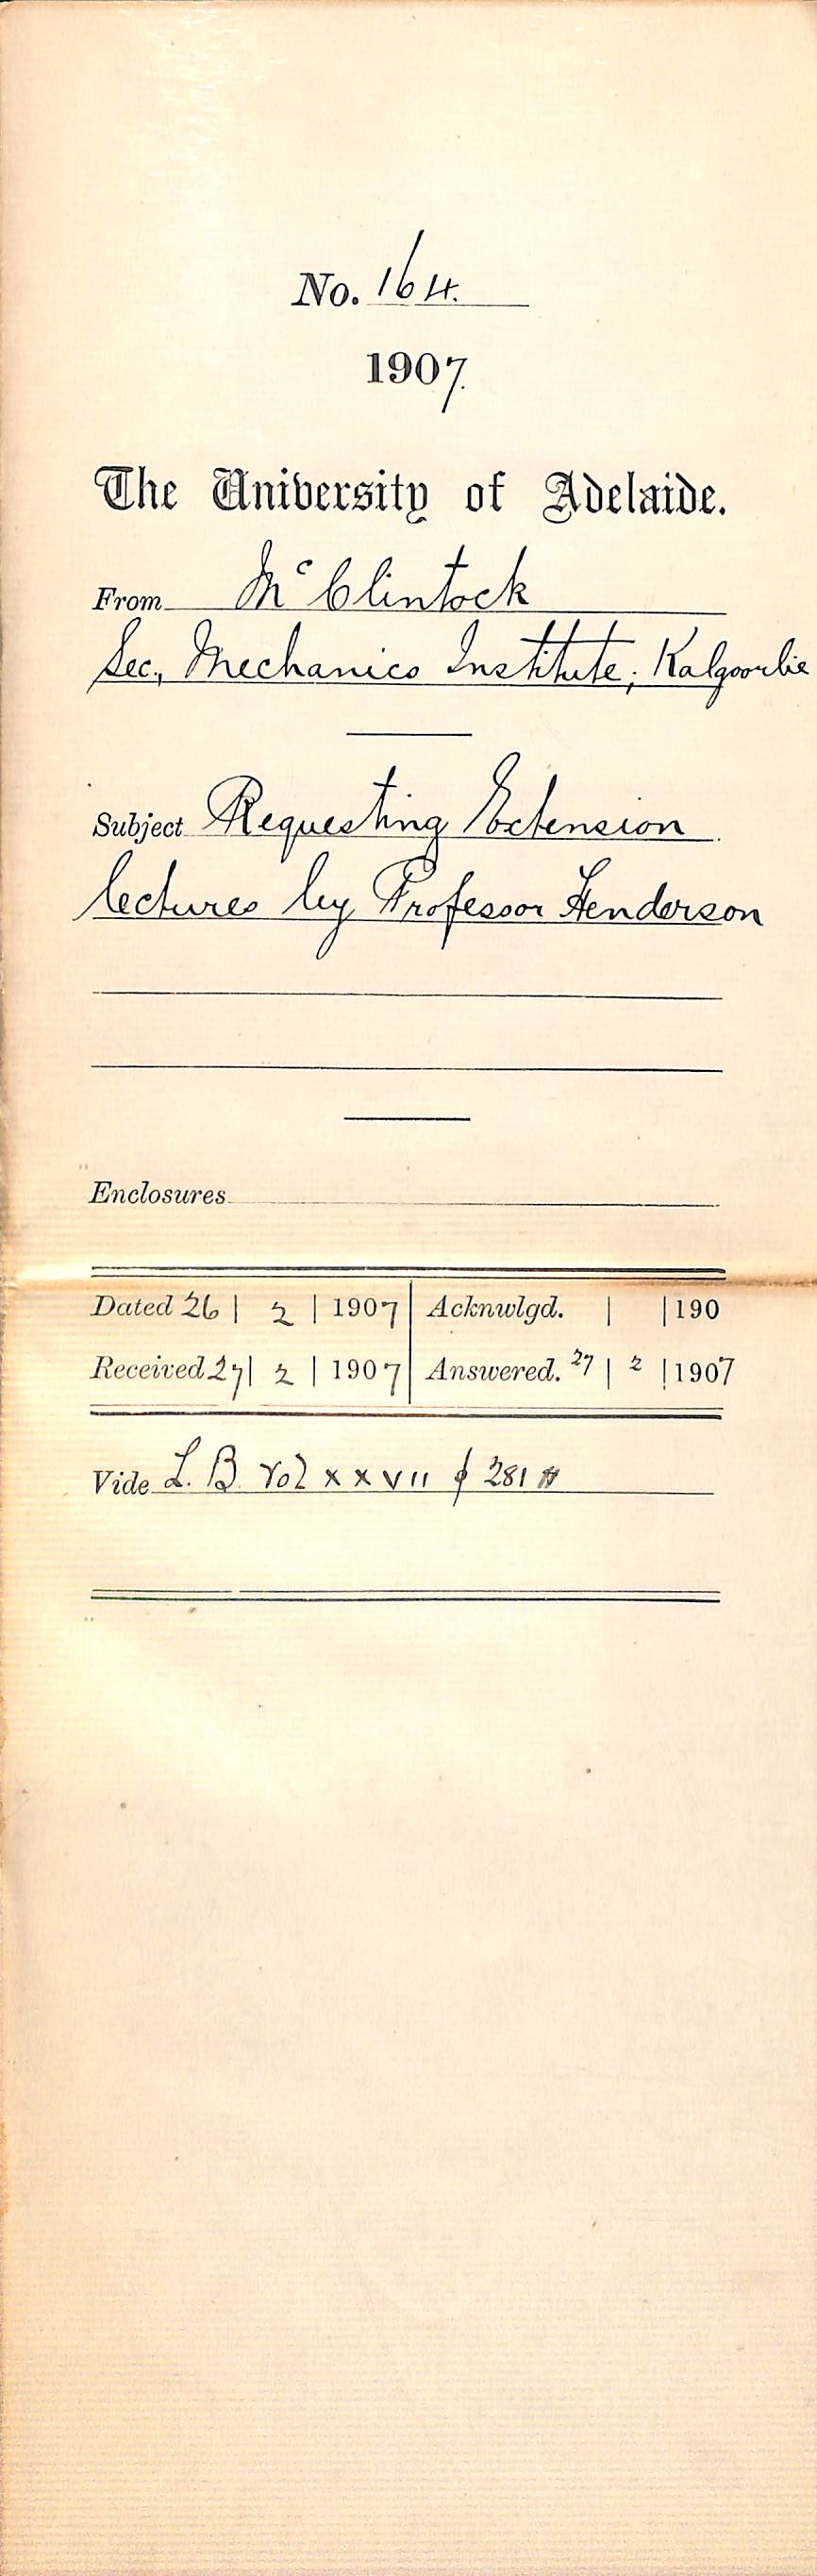 No. 164.
1907.
The University of Adelaide.
From Mc Clintock
Sec., Mechanics Institute, Kalgoorlie
Subject Requesting Extension
lectures by Professor Henderson
Enclosures
Dated 26 | 2 | 1907 | Acknwlgd. | | 190
Received 27 | 2 | 1907 | Answered. 27 | 2 | 1907
Vide L. B. Vol XXVII p 281